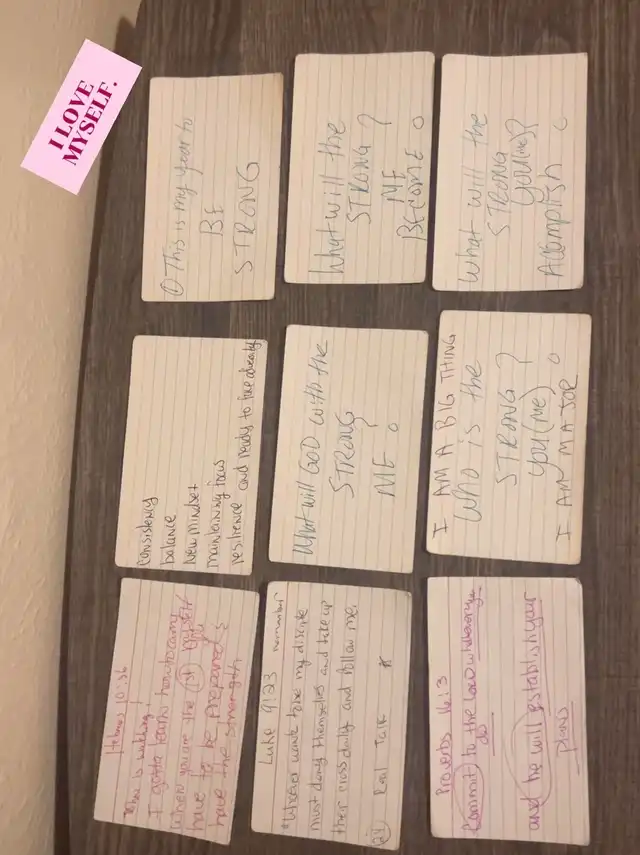 I LOVE
MYSELF.
① This is my year to
BE
STRONG
What will the
STRONG ?
ME
BECOME
What will the
STRONG
YOU(me)?
Accomplish
consistency
balance
New mindset
maintaining focus
resilience and ready to
What will GOD with the
STRONG
ME ?
I AM A BIG THING
Who is the
STRONG ?
YOU(me)
I AM MAJOR
Hebrews 10:36
I gotta learn how to carry
When you are the 1st
have to be prepared &
have the strength
Luke 9:23 remember
"Whoever wants to be my disciple
must deny themselves and take up
their cross daily and follow me.
(24) Real Talk *
Proverbs 16:3
Commit to the Lord whatever
do
and he will establish your
plans